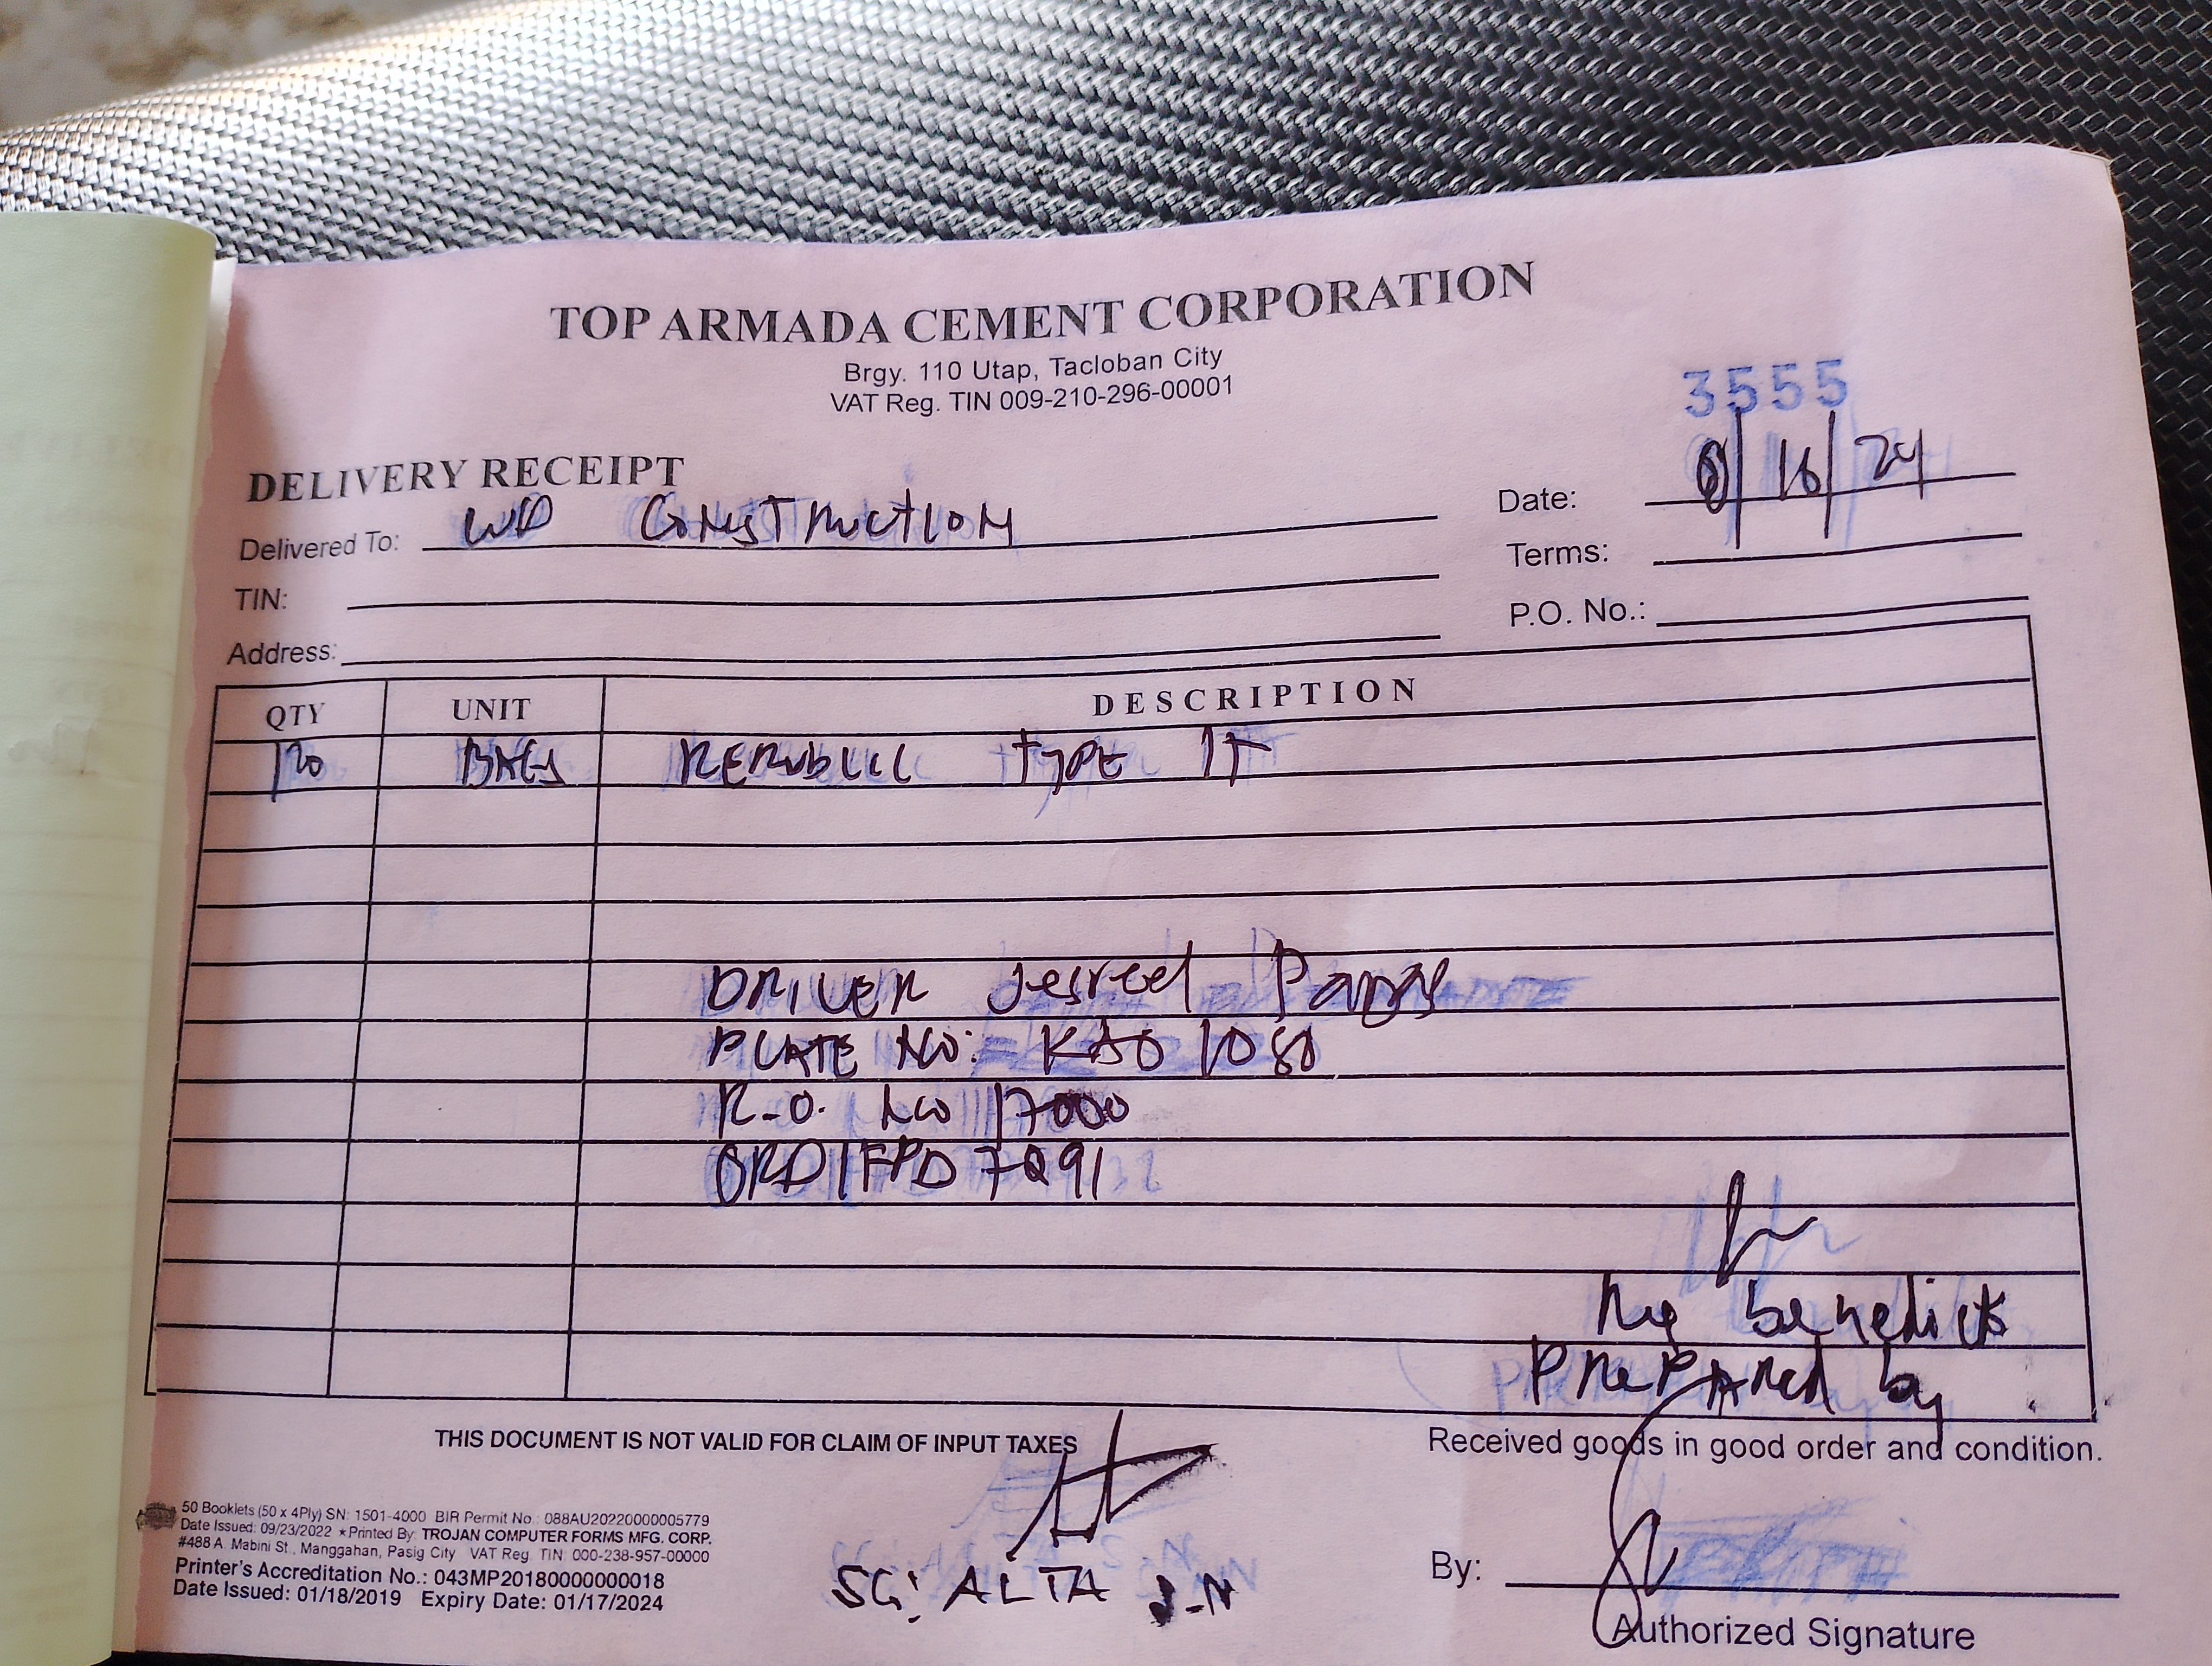 TOP ARMADA CEMENT CORPORATION
Brgy. 110 Utap, Tacloban City
VAT Reg. TIN 009-210-296-00001
3555
DELIVERY RECEIPT
Date: 8/16/24
Delivered To: WD CONSTRUCTION
Terms:
TIN:
P.O. No.:
Address:
QTY UNIT DESCRIPTION
120 BAGS REPUBLIC TYPE 1T
DRIVER Jesreel
PLATE NO: KAO 1080
R.O. NO 17000
ORD1FPD 7291
benedicts
PREPARED by
THIS DOCUMENT IS NOT VALID FOR CLAIM OF INPUT TAXES
Received goods in good order and condition.
50 Booklets (50 x 4Ply) SN: 1501-4000 BIR Permit No.: 088AU20220000005779
Date Issued: 09/23/2022 ★Printed By: TROJAN COMPUTER FORMS MFG. CORP.
#488 A. Mabini St., Manggahan, Pasig City VAT Reg. TIN: 000-238-957-00000
Printer's Accreditation No.: 043MP20180000000018
Date Issued: 01/18/2019 Expiry Date: 01/17/2024
SG: ALTA J-N
By:
Authorized Signature